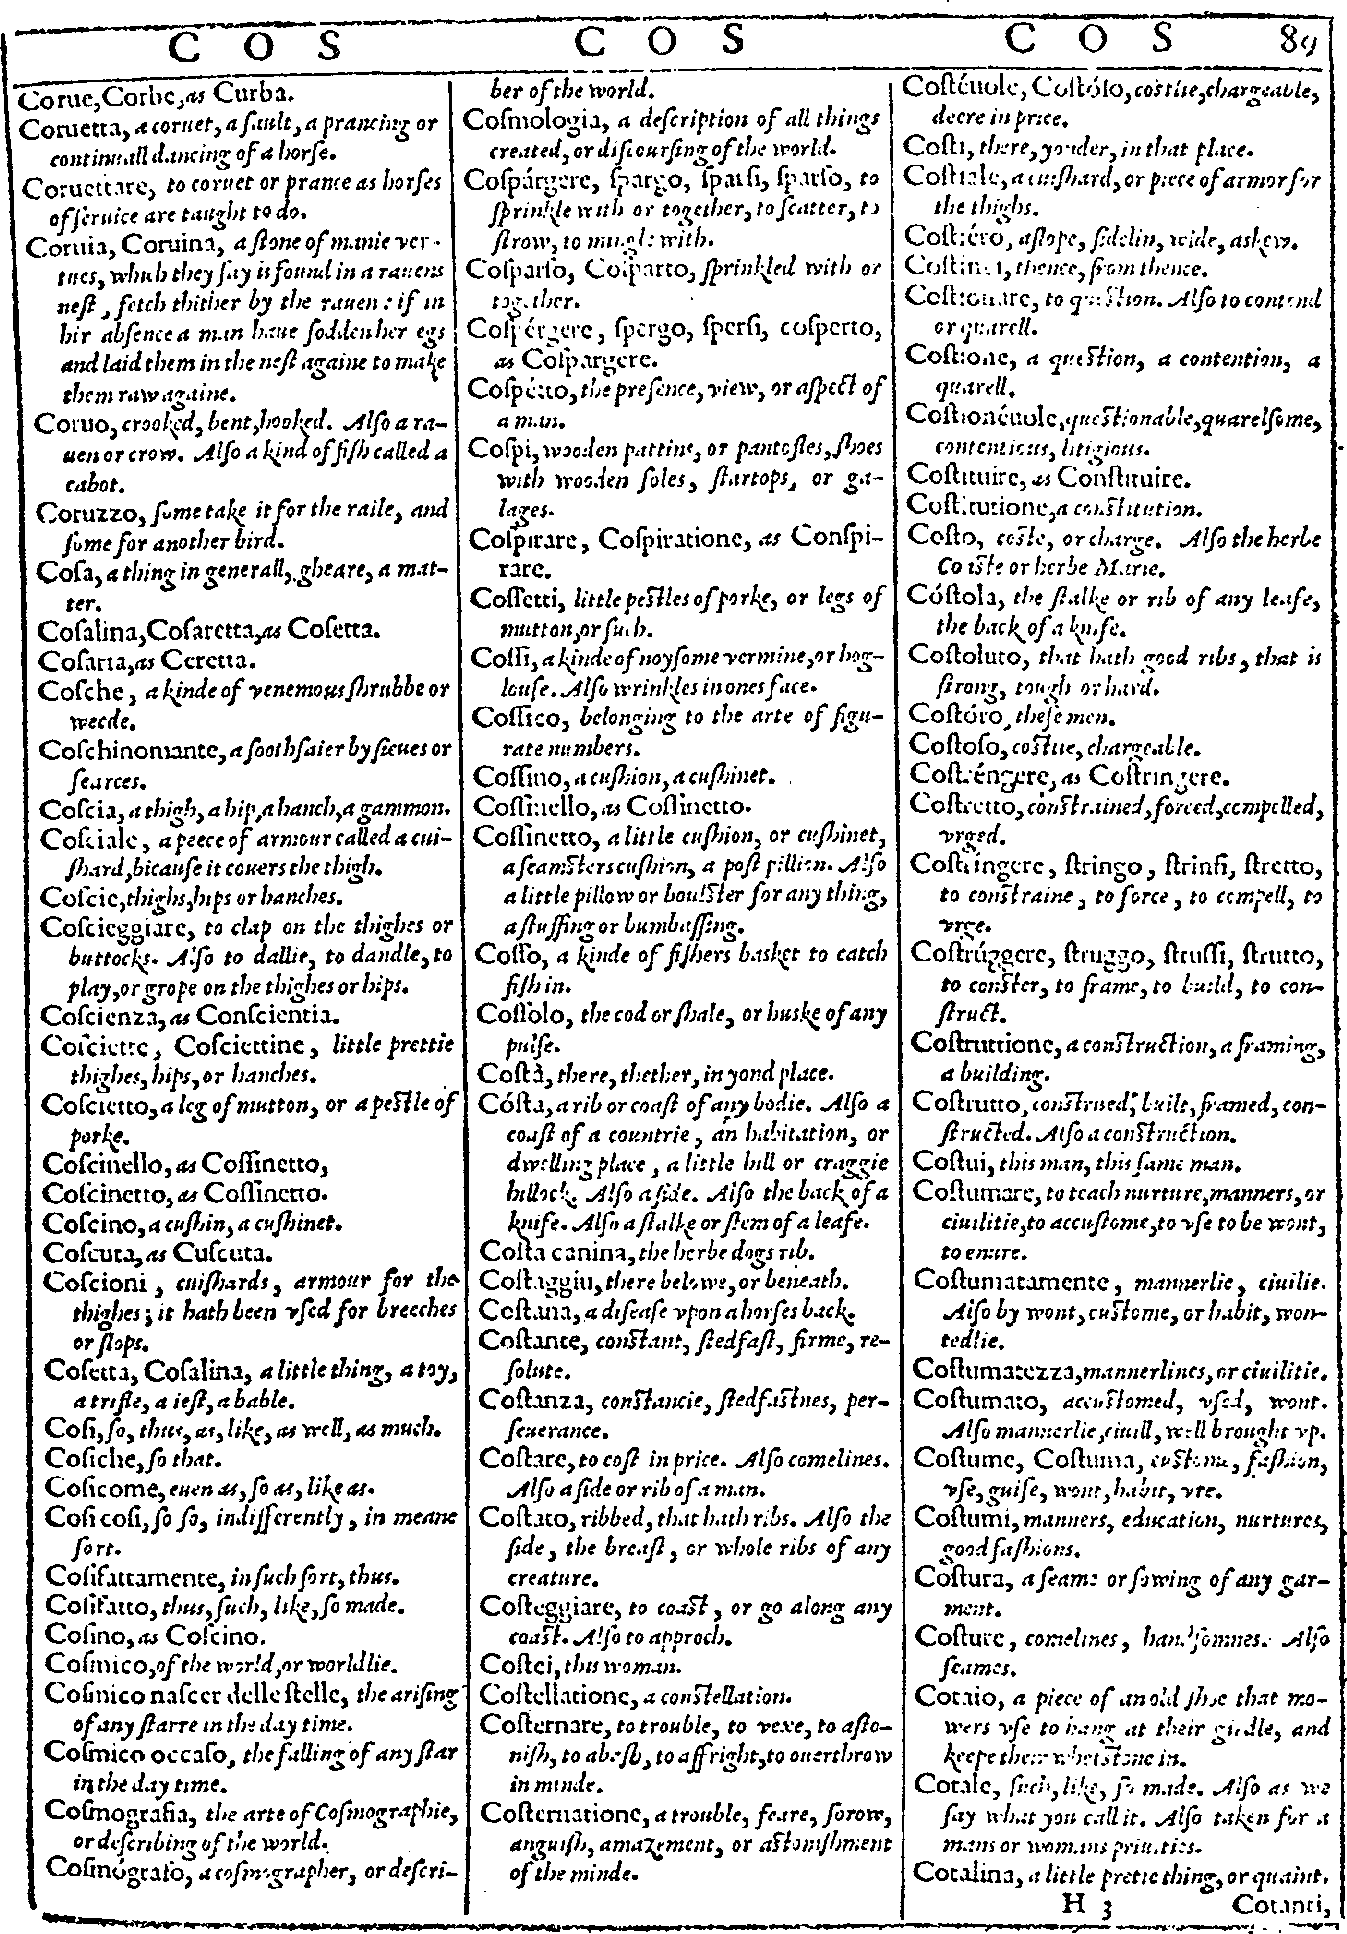 C O S
C O S
C O S 89
Corue, Corbe, as Curba.
Coruetta, a coruet, a sault, a prancing or
continuall dancing of a horse.
Coruettare, to coruet or prance as horses
of seruice are taught to do.
Coruia, Coruina, a stone of manie ver-
tues, which they say is found in a rauens
nest, fetch thither by the rauen: if in
hir absence a man haue sodden her egs
and laid them in the nest againe to make
them raw againe.
Coruo, crooked, bent, hooked. Also a ra-
uen or crow. Also a kind of fish called a
cabot.
Coruzzo, some take it for the raile, and
some for another bird.
Cosa, a thing in generall, gheare, a mat-
ter.
Cosalina, Cosaretta, as Cosetta.
Cosatia, as Ceretta.
Cosche, a kinde of venemous shrubbe or
weede.
Coschinomante, a soothsaier by sieues or
searces.
Coscia, a thigh, a hip, a hanch, a gammon.
Cosciale, a peece of armour called a cui-
shard, bicause it couers the thigh.
Coscie, thighs, hips or hanches.
Coscieggiare, to clap on the thighes or
buttocks. Also to dallie, to dandle, to
play, or grope on the thighes or hips.
Coscienza, as Conscientia.
Cosciette, Cosciettine, little prettie
thighes, hips, or hanches.
Coscietto, a leg of mutton, or a pestle of
porke.
Coscinello, as Cossinetto,
Coscinetto, as Cossinetto.
Coscino, a cushin, a cushinet.
Coscuta, as Cuscuta.
Coscioni, cuishards, armour for the
thighes; it hath been vsed for breeches
or slops.
Cosetta, Cosalina, a little thing, a toy,
a trifle, a iest, a bable.
Cosi, so, thus, as, like, as well, as much.
Cosiche, so that.
Cosicome, euen as, so as, like as.
Cosi cosi, so so, indifferently, in meane
sort.
Cosifattamente, in such sort, thus.
Cosifatto, thus, such, like, so made.
Cosino, as Coscino.
Cosmico, of the world, or worldlie.
Cosmico nascer delle stelle, the arising
of any starre in the day time.
Cosmico occaso, the falling of any star
in the day time.
Cosmografia, the arte of Cosmographie,
or describing of the world.
Cosmógrafo, a cosmographer, or descri-
ber of the world.
Cosmologia, a description of all things
created, or discoursing of the world.
Cospárgere, spargo, sparsi, sparso, to
sprinkle with or together, to scatter, to
strow, to mingle with.
Cosparso, Cosparto, sprinkled with or
together.
Cospérgere, spergo, spersi, cosperto,
as Cospargere.
Cospétto, the presence, view, or aspect of
a man.
Cospi, wooden pattins, or pantofles, shoes
with wooden soles, startops, or ga-
lages.
Cospirare, Cospiratione, as Conspi-
rare.
Cossetti, little pestles of porke, or legs of
mutton, or such.
Cossi, a kinde of noysome vermine, or hog-
louse. Also wrinkles in ones face.
Cossico, belonging to the arte of figu-
rate numbers.
Cossino, a cushion, a cushinet.
Cossinello, as Cossinetto.
Cossinetto, a little cushion, or cushinet,
a seamsters cushion, a post pillion. Also
a little pillow or boulster for any thing,
a stuffing or bumbassing.
Cosso, a kinde of fishers basket to catch
fish in.
Cossolo, the cod or shale, or huske of any
pulse.
Costà, there, thether, in yond place.
Cósta, a rib or coast of any bodie. Also a
coast of a countrie, an habitation, or
dwelling place, a little hill or craggie
hillock. Also a side. Also the back of a
knife. Also a stalke or stem of a leafe.
Costa canina, the herbe dogs rib.
Costaggiu, there belowe, or beneath.
Costana, a disease vpon a horses back.
Costante, constant, stedfast, firme, re-
solute.
Costanza, constancie, stedfastnes, per-
seuerance.
Costare, to cost in price. Also comelines.
Also a side or rib of a man.
Costato, ribbed, that hath ribs. Also the
side, the breast, or whole ribs of any
creature.
Costeggiare, to coast, or go along any
coast. Also to approch.
Costei, this woman.
Costellatione, a constellation.
Costernare, to trouble, to vexe, to asto-
nish, to abash, to affright, to ouerthrow
in minde.
Costernatione, a trouble, feare, sorow,
anguish, amazement, or astonishment
of the minde.
Costéuole, Costóso, costlie, chargeable,
deere in price.
Costi, there, yonder, in that place.
Costiale, a cuishard, or piece of armor for
the thighs.
Costiéro, aslope, sidelin, wide, askew.
Costinci, thence, from thence.
Costionare, to question. Also to contend
or quarell.
Costione, a question, a contention, a
quarell.
Costionéuole, questionable, quarelsome,
contentious, litigious.
Costituire, as Constituire.
Costitutione, a constitution.
Costo, coste, or charge. Also the herbe
Coste or herbe Marie.
Cóstola, the stalke or rib of any leafe,
the back of a knife.
Costoluto, that hath good ribs, that is
strong, tough or hard.
Costóro, these men.
Costoso, costlie, chargeable.
Costréngere, as Costringere.
Costretto, constrained, forced, compelled,
vrged.
Costringere, stringo, strinsi, stretto,
to constraine, to force, to compell, to
vrge.
Costrúggere, struggo, strussi, strutto,
to conster, to frame, to build, to con-
struct.
Costruttione, a construction, a framing,
a building.
Costrutto, construed, built, framed, con-
structed. Also a construction.
Costui, this man, this same man.
Costumare, to teach nurture, manners, or
ciuilitie, to accustome, to vse to be wont,
to enure.
Costumatamente, mannerlie, ciuilie.
Also by wont, custome, or habit, won-
tedlie.
Costumatezza, mannerlines, or ciuilitie.
Costumato, accustomed, vsed, wont.
Also mannerlie, ciuill, well brought vp.
Costume, Costuma, custome, fashion,
vse, guise, wont, habit, vre.
Costumi, manners, education, nurtures,
good fashions.
Costura, a seame or sowing of any gar-
ment.
Costure, comelines, handsomnes. Also
seames.
Cotaio, a piece of an old shoe that mo-
wers vse to hang at their girdle, and
keepe their whetstone in.
Cotale, such, like, so made. Also as we
say what you call it. Also taken for a
mans or womans priuities.
Cotalina, a little prettie thing, or quaint.
H 3 Cotanti,